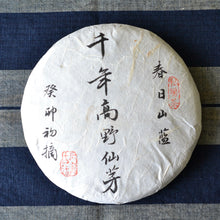 春日山蓝
千年高野仙芽
癸卯初摘